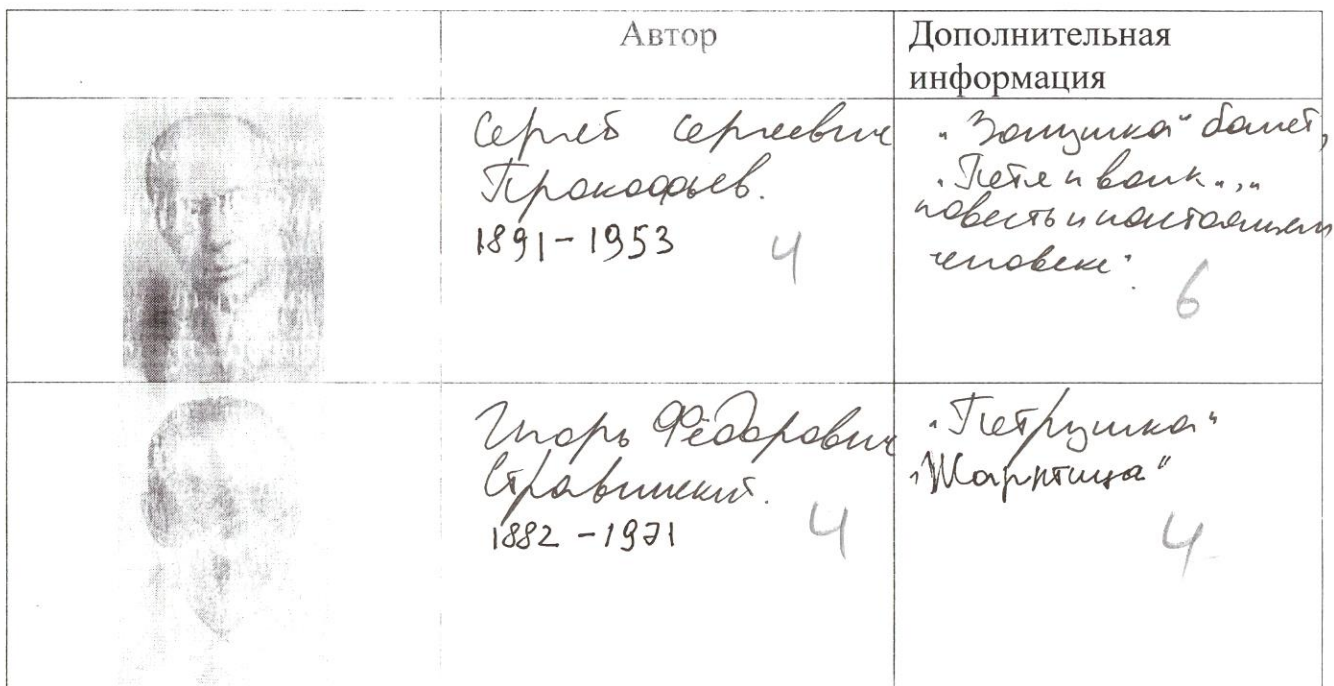 Автор
Дополнительная
информация
Сергей Сергеевич
Прокофьев.
1891-1953
4
"Золушка" балет,
"Петя и волк", "
повесть и настоящем
человеке".
6
Игорь Фёдорович
Стравинский.
1882-1971
4
"Петрушка"
"Жарптица"
4